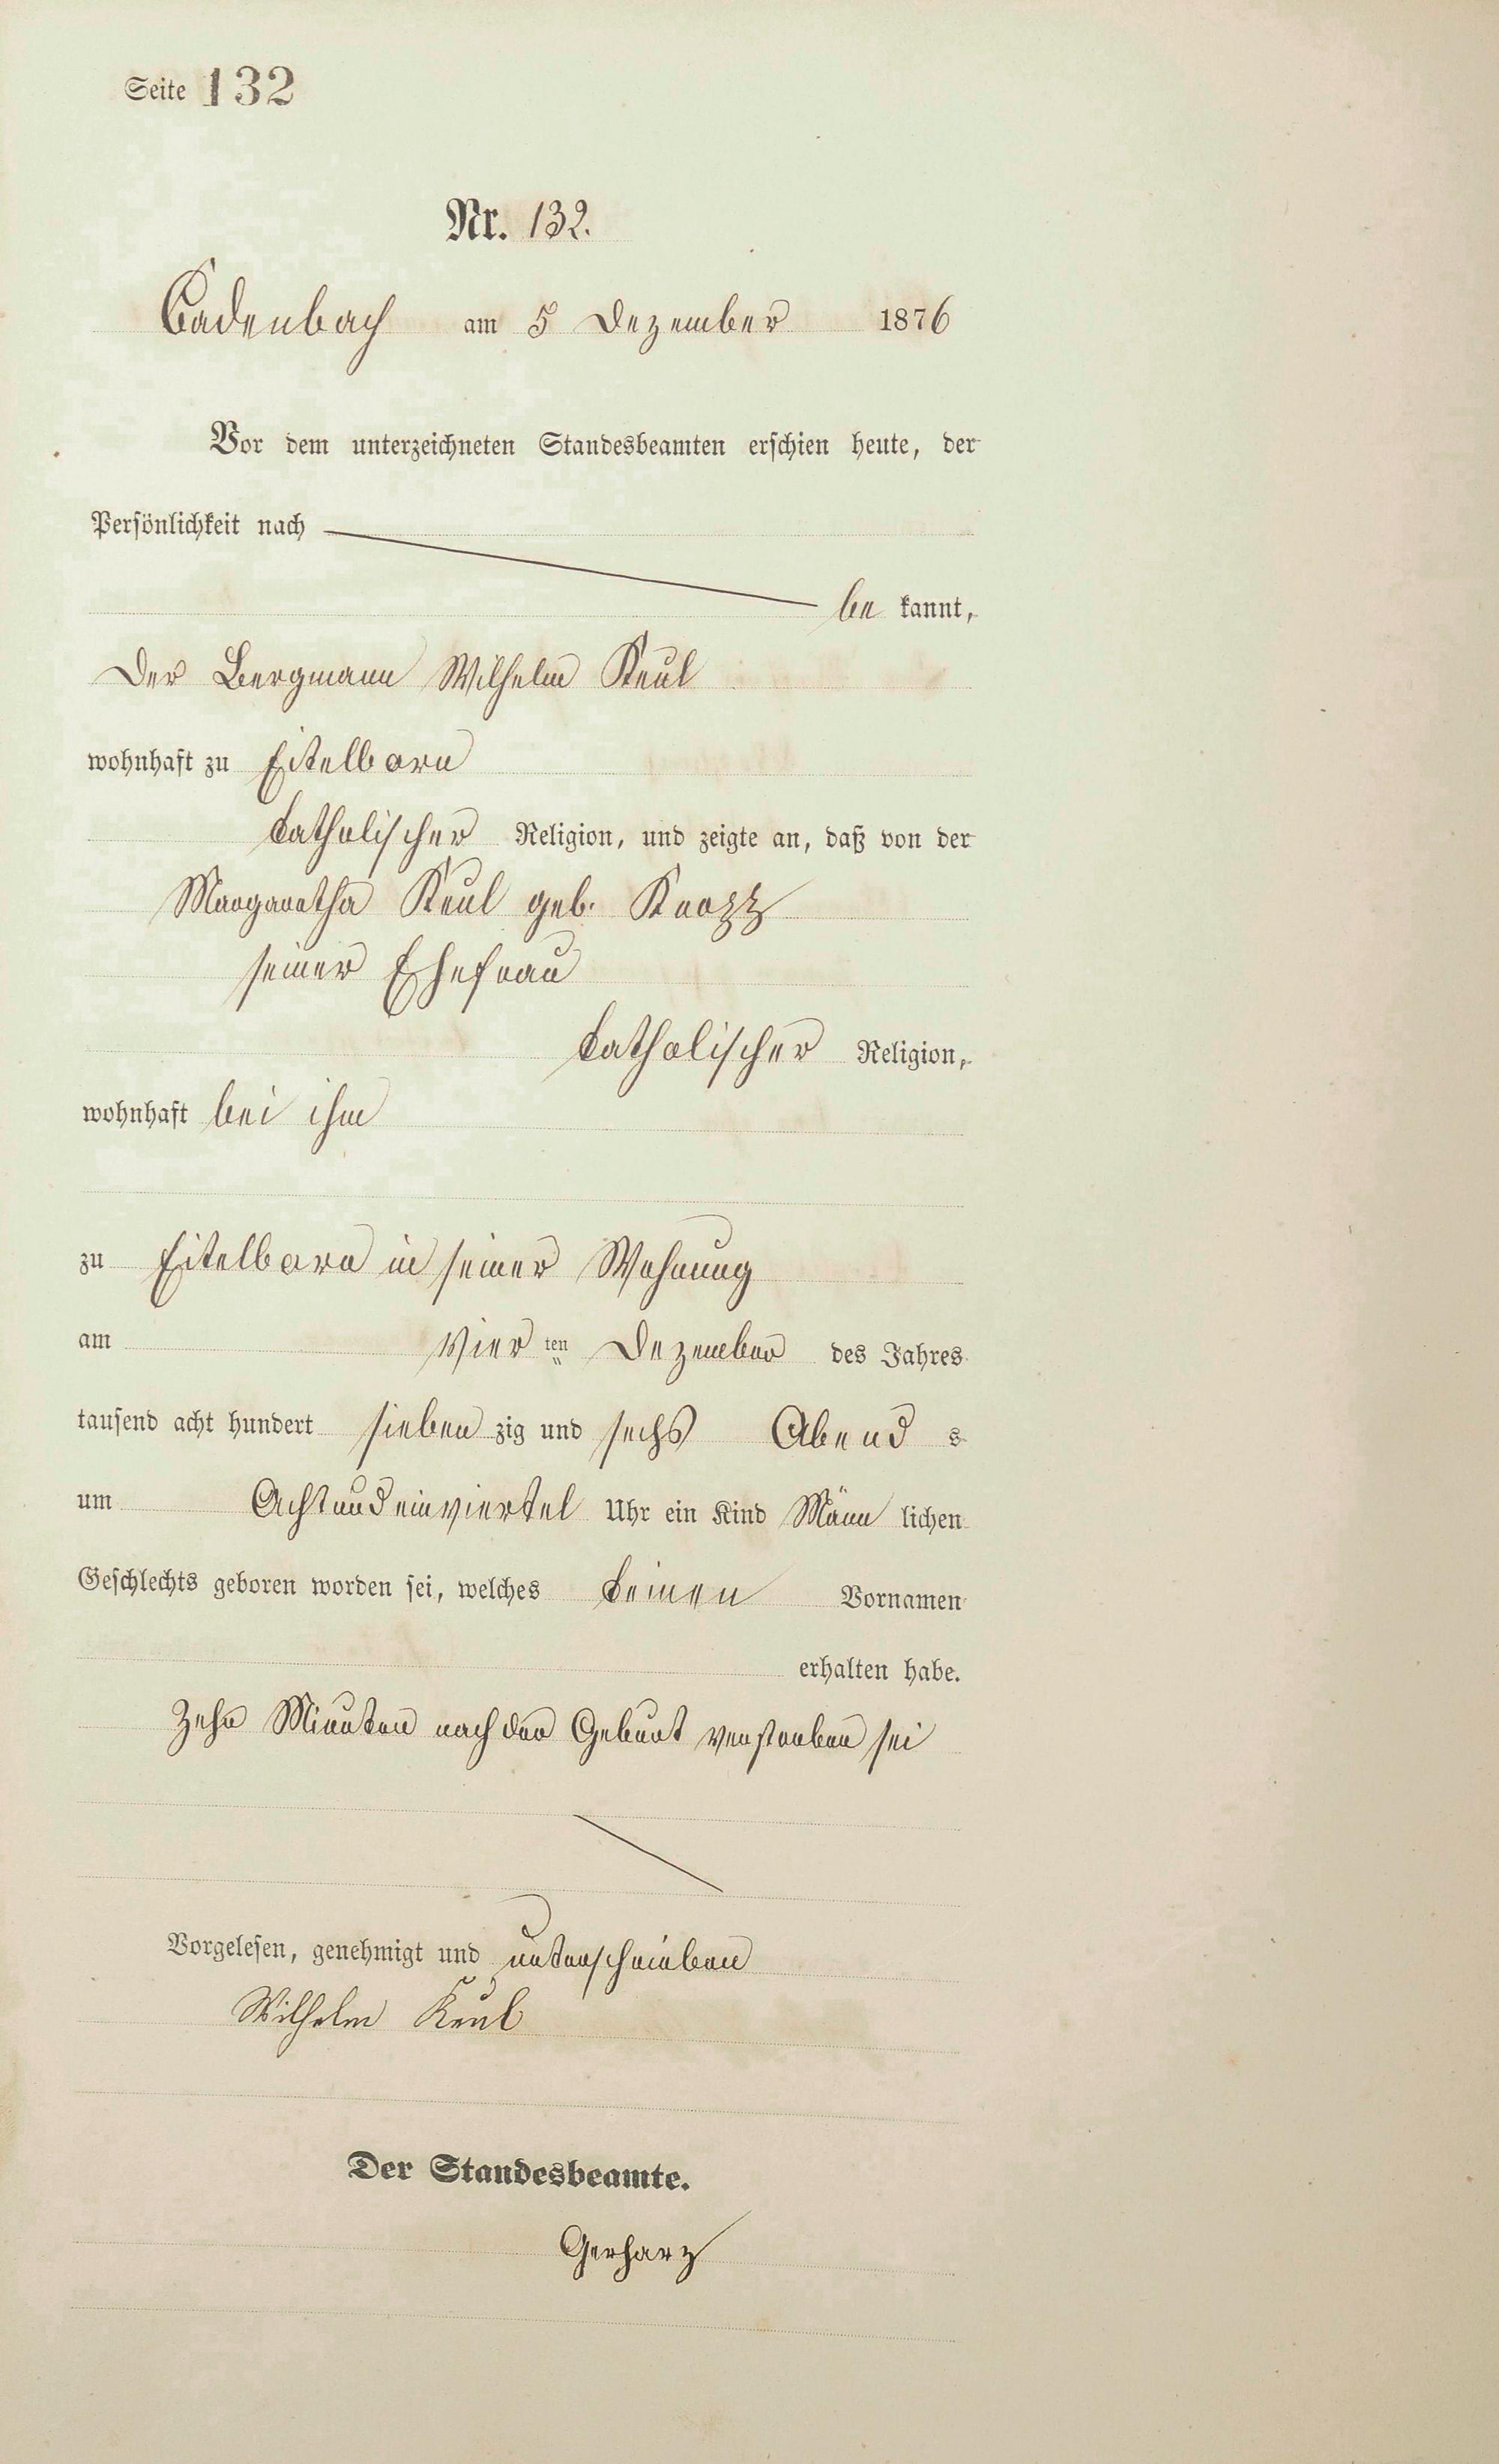 Seite 132
Nr. 132.
Cadenbach am 5 Dezember 1876
Vor dem unterzeichneten Standesbeamten erschien heute, der
Persönlichkeit nach
be kannt,
Der Bergmann Wilhelm Keul
wohnhaft zu Eitelborn
katholischer Religion, und zeigte an, daß von der
Margaretha Keul geb.
seiner Ehefrau
katholischer Religion,
wohnhaft bei ihm
zu Eitelborn in seiner Wohnung
am Vier ten Dezember des Jahres
tausend acht hundert sieben zig und sechs Abend s
um Achtundeinviertel Uhr ein Kind Männ lichen
Geschlechts geboren worden sei, welches keinen Vornamen
erhalten habe.
Zehn Minuten nach der Geburt verstorben sei
Vorgelesen, genehmigt und unterschrieben
Wilhelm Keul
Der Standesbeamte.
Gerharz